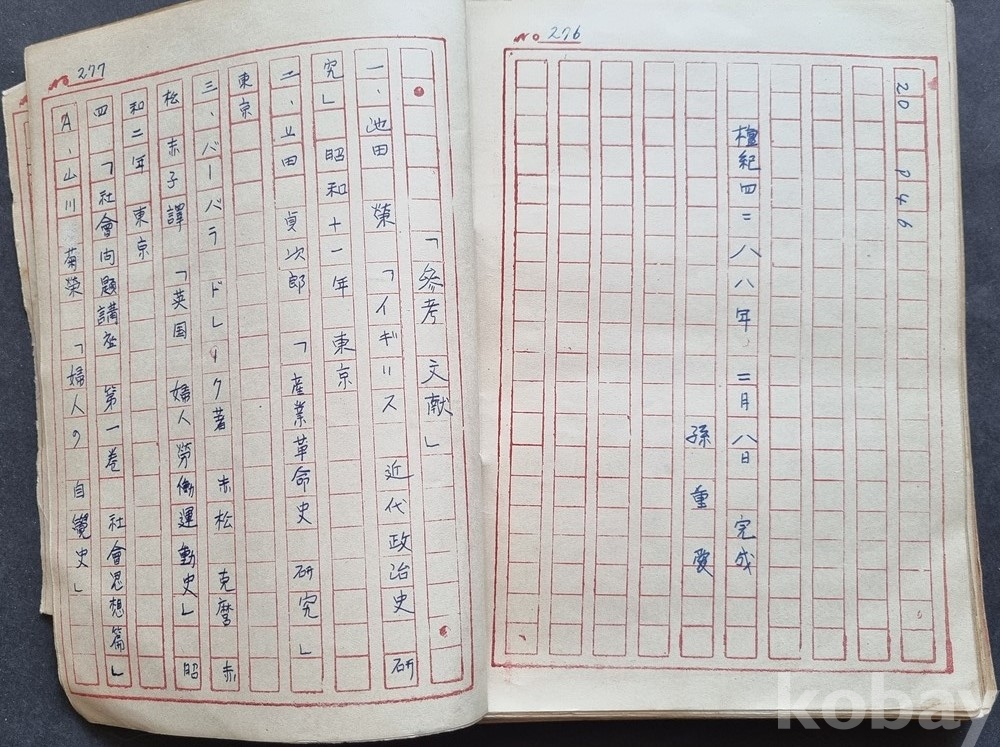 No 276
20 P46
檀紀四二八八年 二月八日 完成
孫重愛
No 277
「參考文献」
一、池田 榮 「イギリス 近代政治史 研
究」 昭和十一年 東京
二、上田 貞次郎 「産業革命史 研究」
東京
三、バーバラ ドレーク著 赤松 克麿 赤
松 赤子譯 「英国 婦人労働運動史」 昭
和二年 東京
四 「社會问題講座 第一巻 社會思想篇」
A、山川 菊榮 「婦人の 自覺史」
kobay